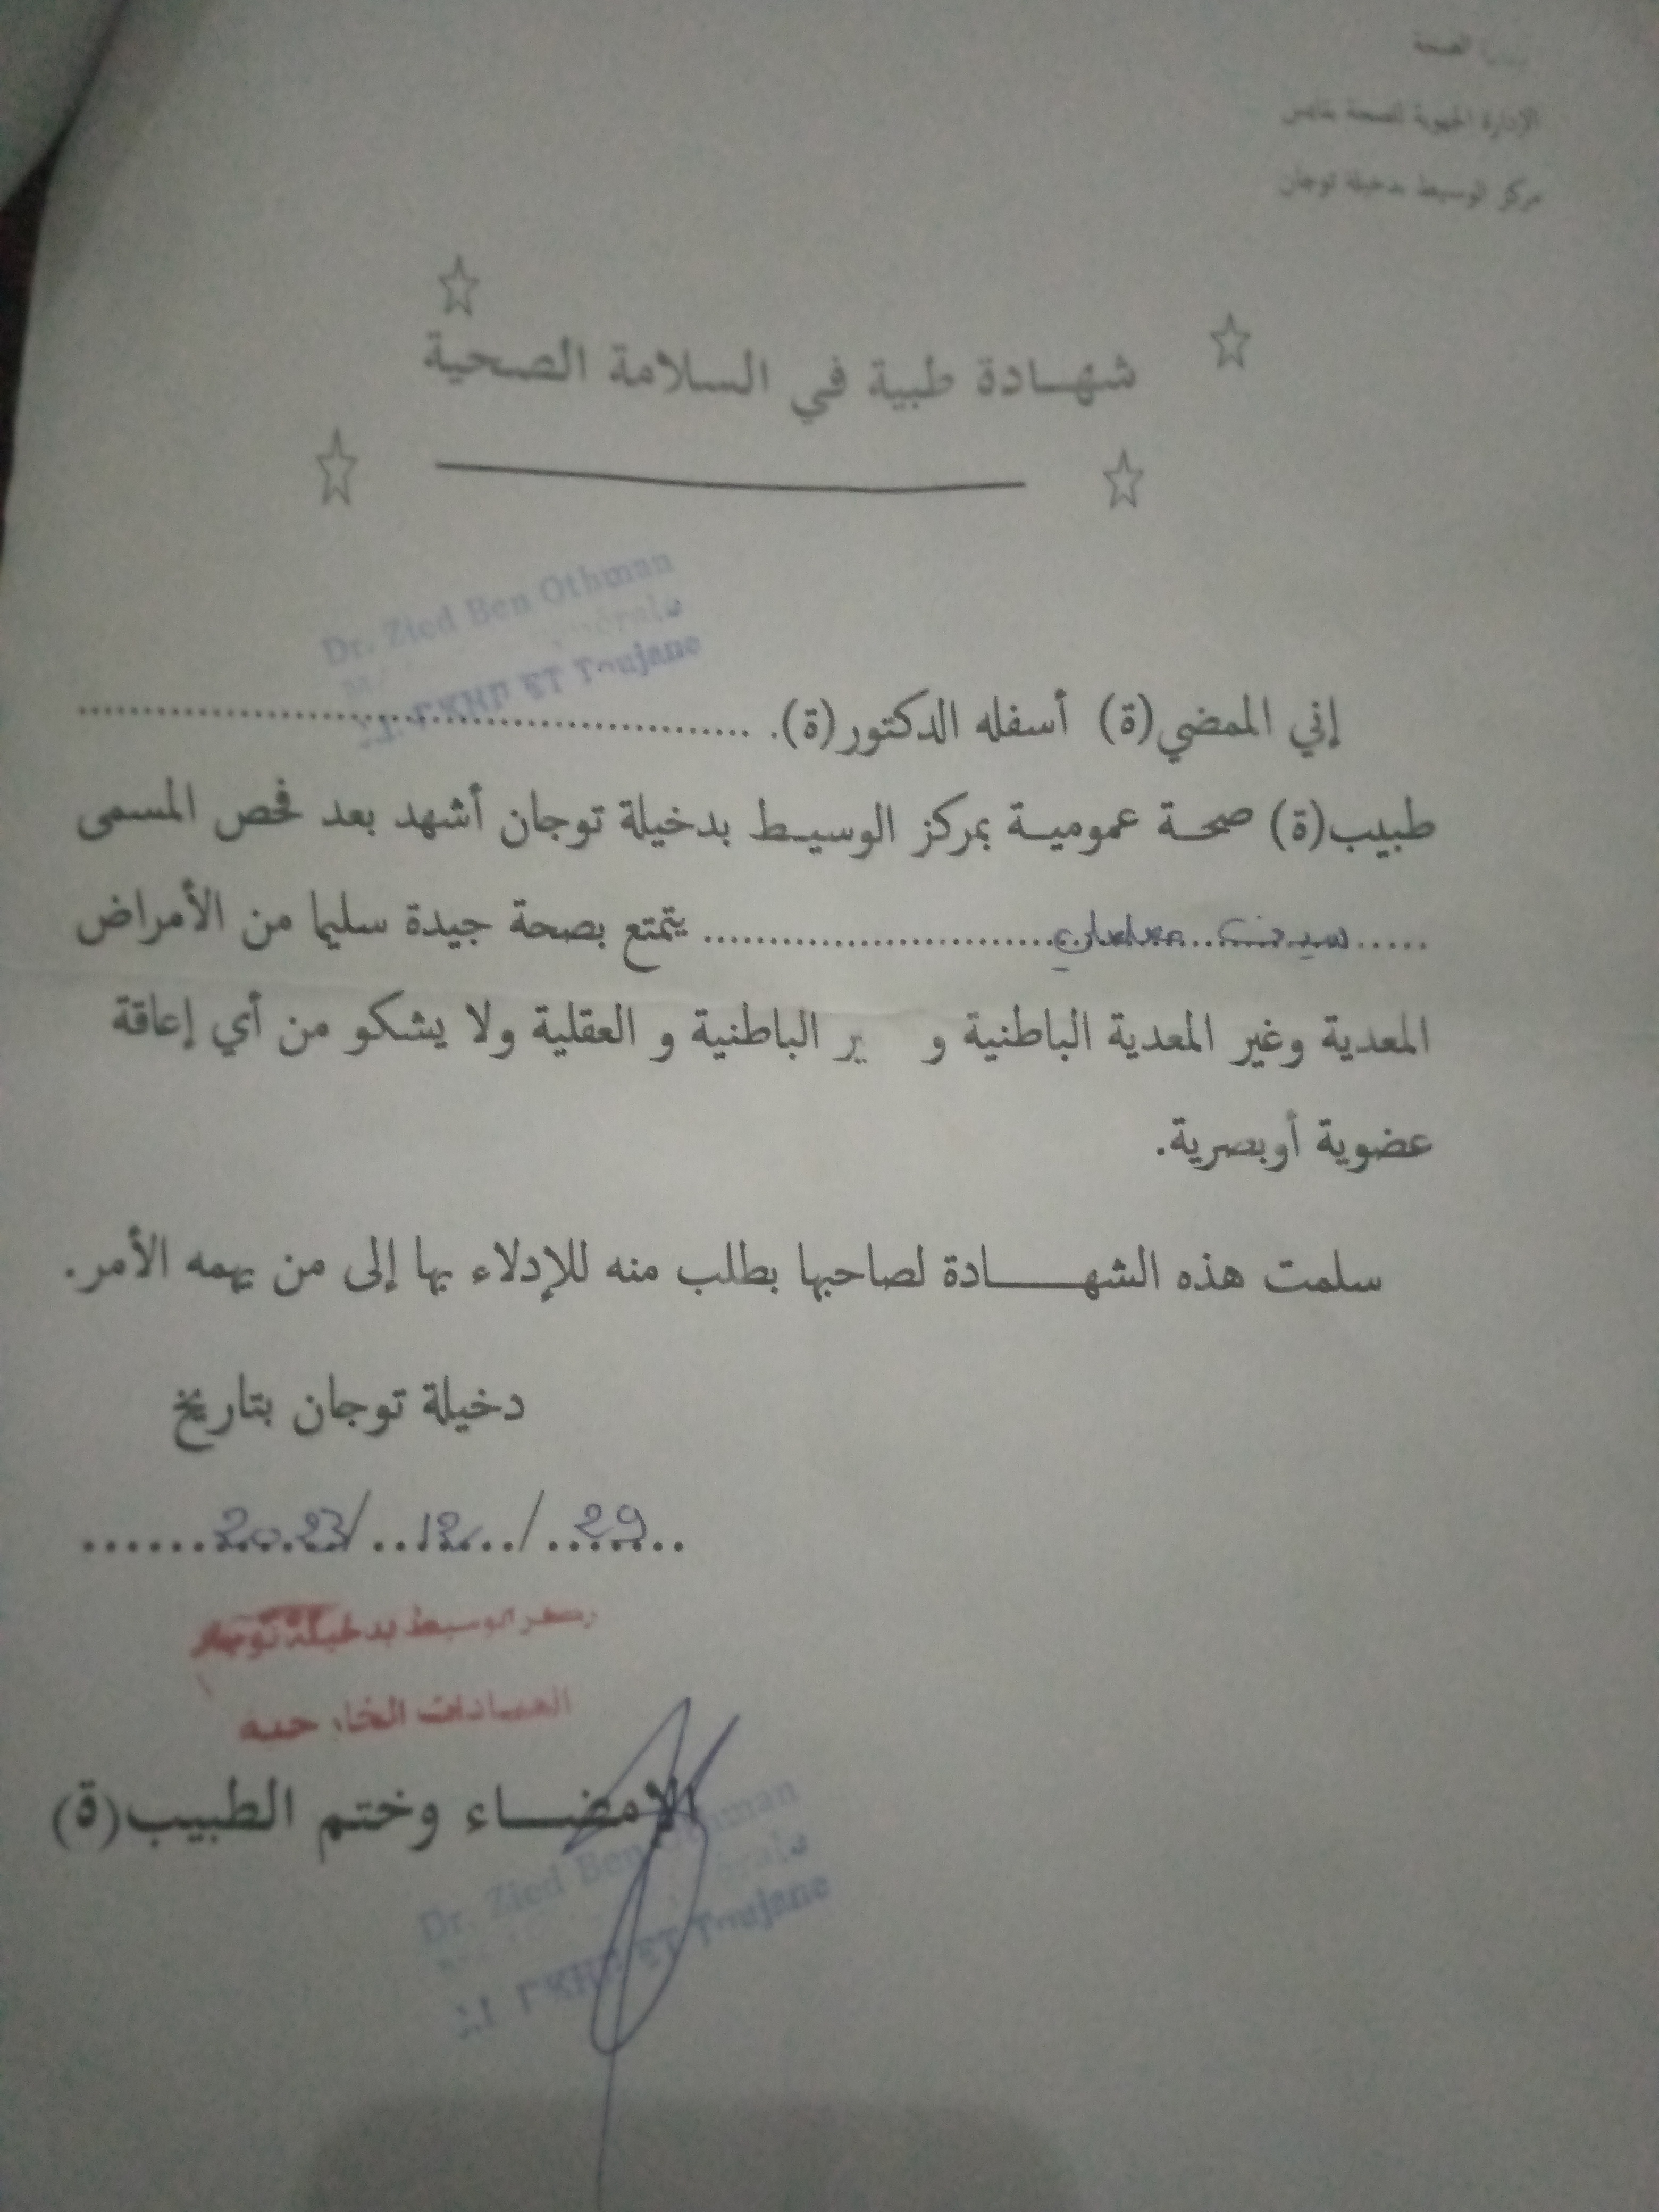 الصحة
الإدارة الجهوية للصحة بقابس
مركز الوسيط بدخيلة توجان
شهادة طبية في السلامة الصحية
Dr. Zied Ben Othman
Toujane
إني الممضي(ة) أسفله الدكتور(ة). ........................
طبيب(ة) صحة عمومية بمركز الوسيط بدخيلة توجان أشهد بعد فحص المسمى
..... ........................ يتمتع بصحة جيدة سليما من الأمراض
المعدية وغير المعدية الباطنية و ير الباطنية و العقلية ولا يشكو من أي إعاقة
عضوية أوبصرية.
سلمت هذه الشهــــادة لصاحبها بطلب منه للإدلاء بها إلى من يهمه الأمر.
دخيلة توجان بتاريخ
29/12/2023
الوسيط بدخيلة توجان
العيادات الخارجية
الإمضــاء وختم الطبيب(ة)
Dr. Zied Ben Othman
Toujane